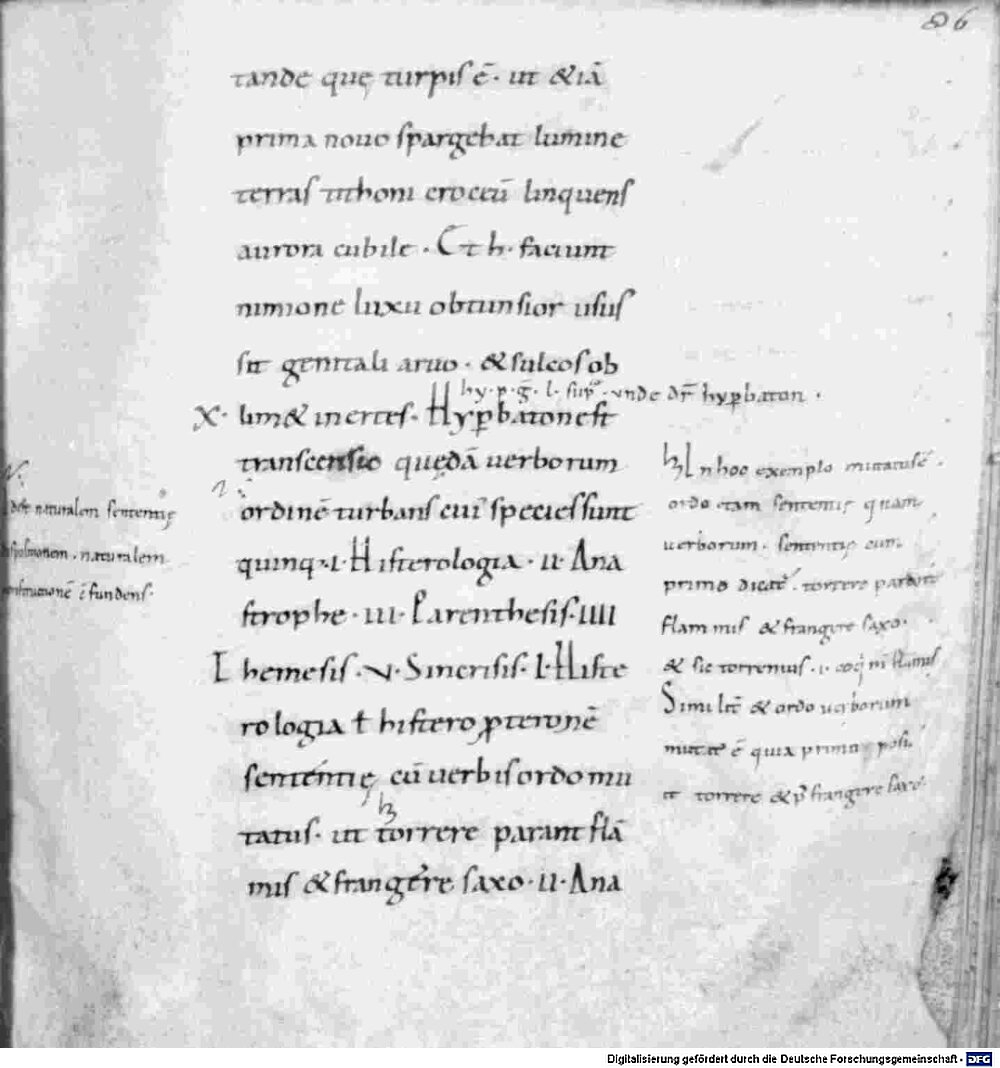 86
tande quę turpis ē· ut &iā
prima nouo spargebat lumine
terras tithoni croceū linquens
aurora cubile · Et h· faciunt
nimione luxu obtunsior usus
sit genitali aruo · & sulcos ob
hy·p·g̅·l·sup̅·unde dr̅ hyꝑbaton ·
X· lim& inertes· Hyꝑbaton est
transcensio quędā uerborum
ordinē turbans cui᷎ species sunt
quinq·I· Histerologia · II· Ana
strophe · III· Parenthesis· IIII
Themesis · V· Sincrisis· I· Histe
rologia ł histero ꝓteron ē
sententię cū uerbis ordo mu
tatus· ut torrere parant flā
mis & frangere saxo · II· Ana
naturalem sententię
naturalem
ē fundens·
In hoc exemplo mutatus ē·
ordo etam sententię quam
uerborum· sententię cum
primo dicat᷎· torrere parant
flammis & frangere saxo·
& sic torremus·
Similit̄ & ordo uerborum
mutat᷎ ē quia prima posi
t torrere & p᷎ frangere saxo·
Digitalisierung gefördert durch die Deutsche Forschungsgemeinschaft - DFG